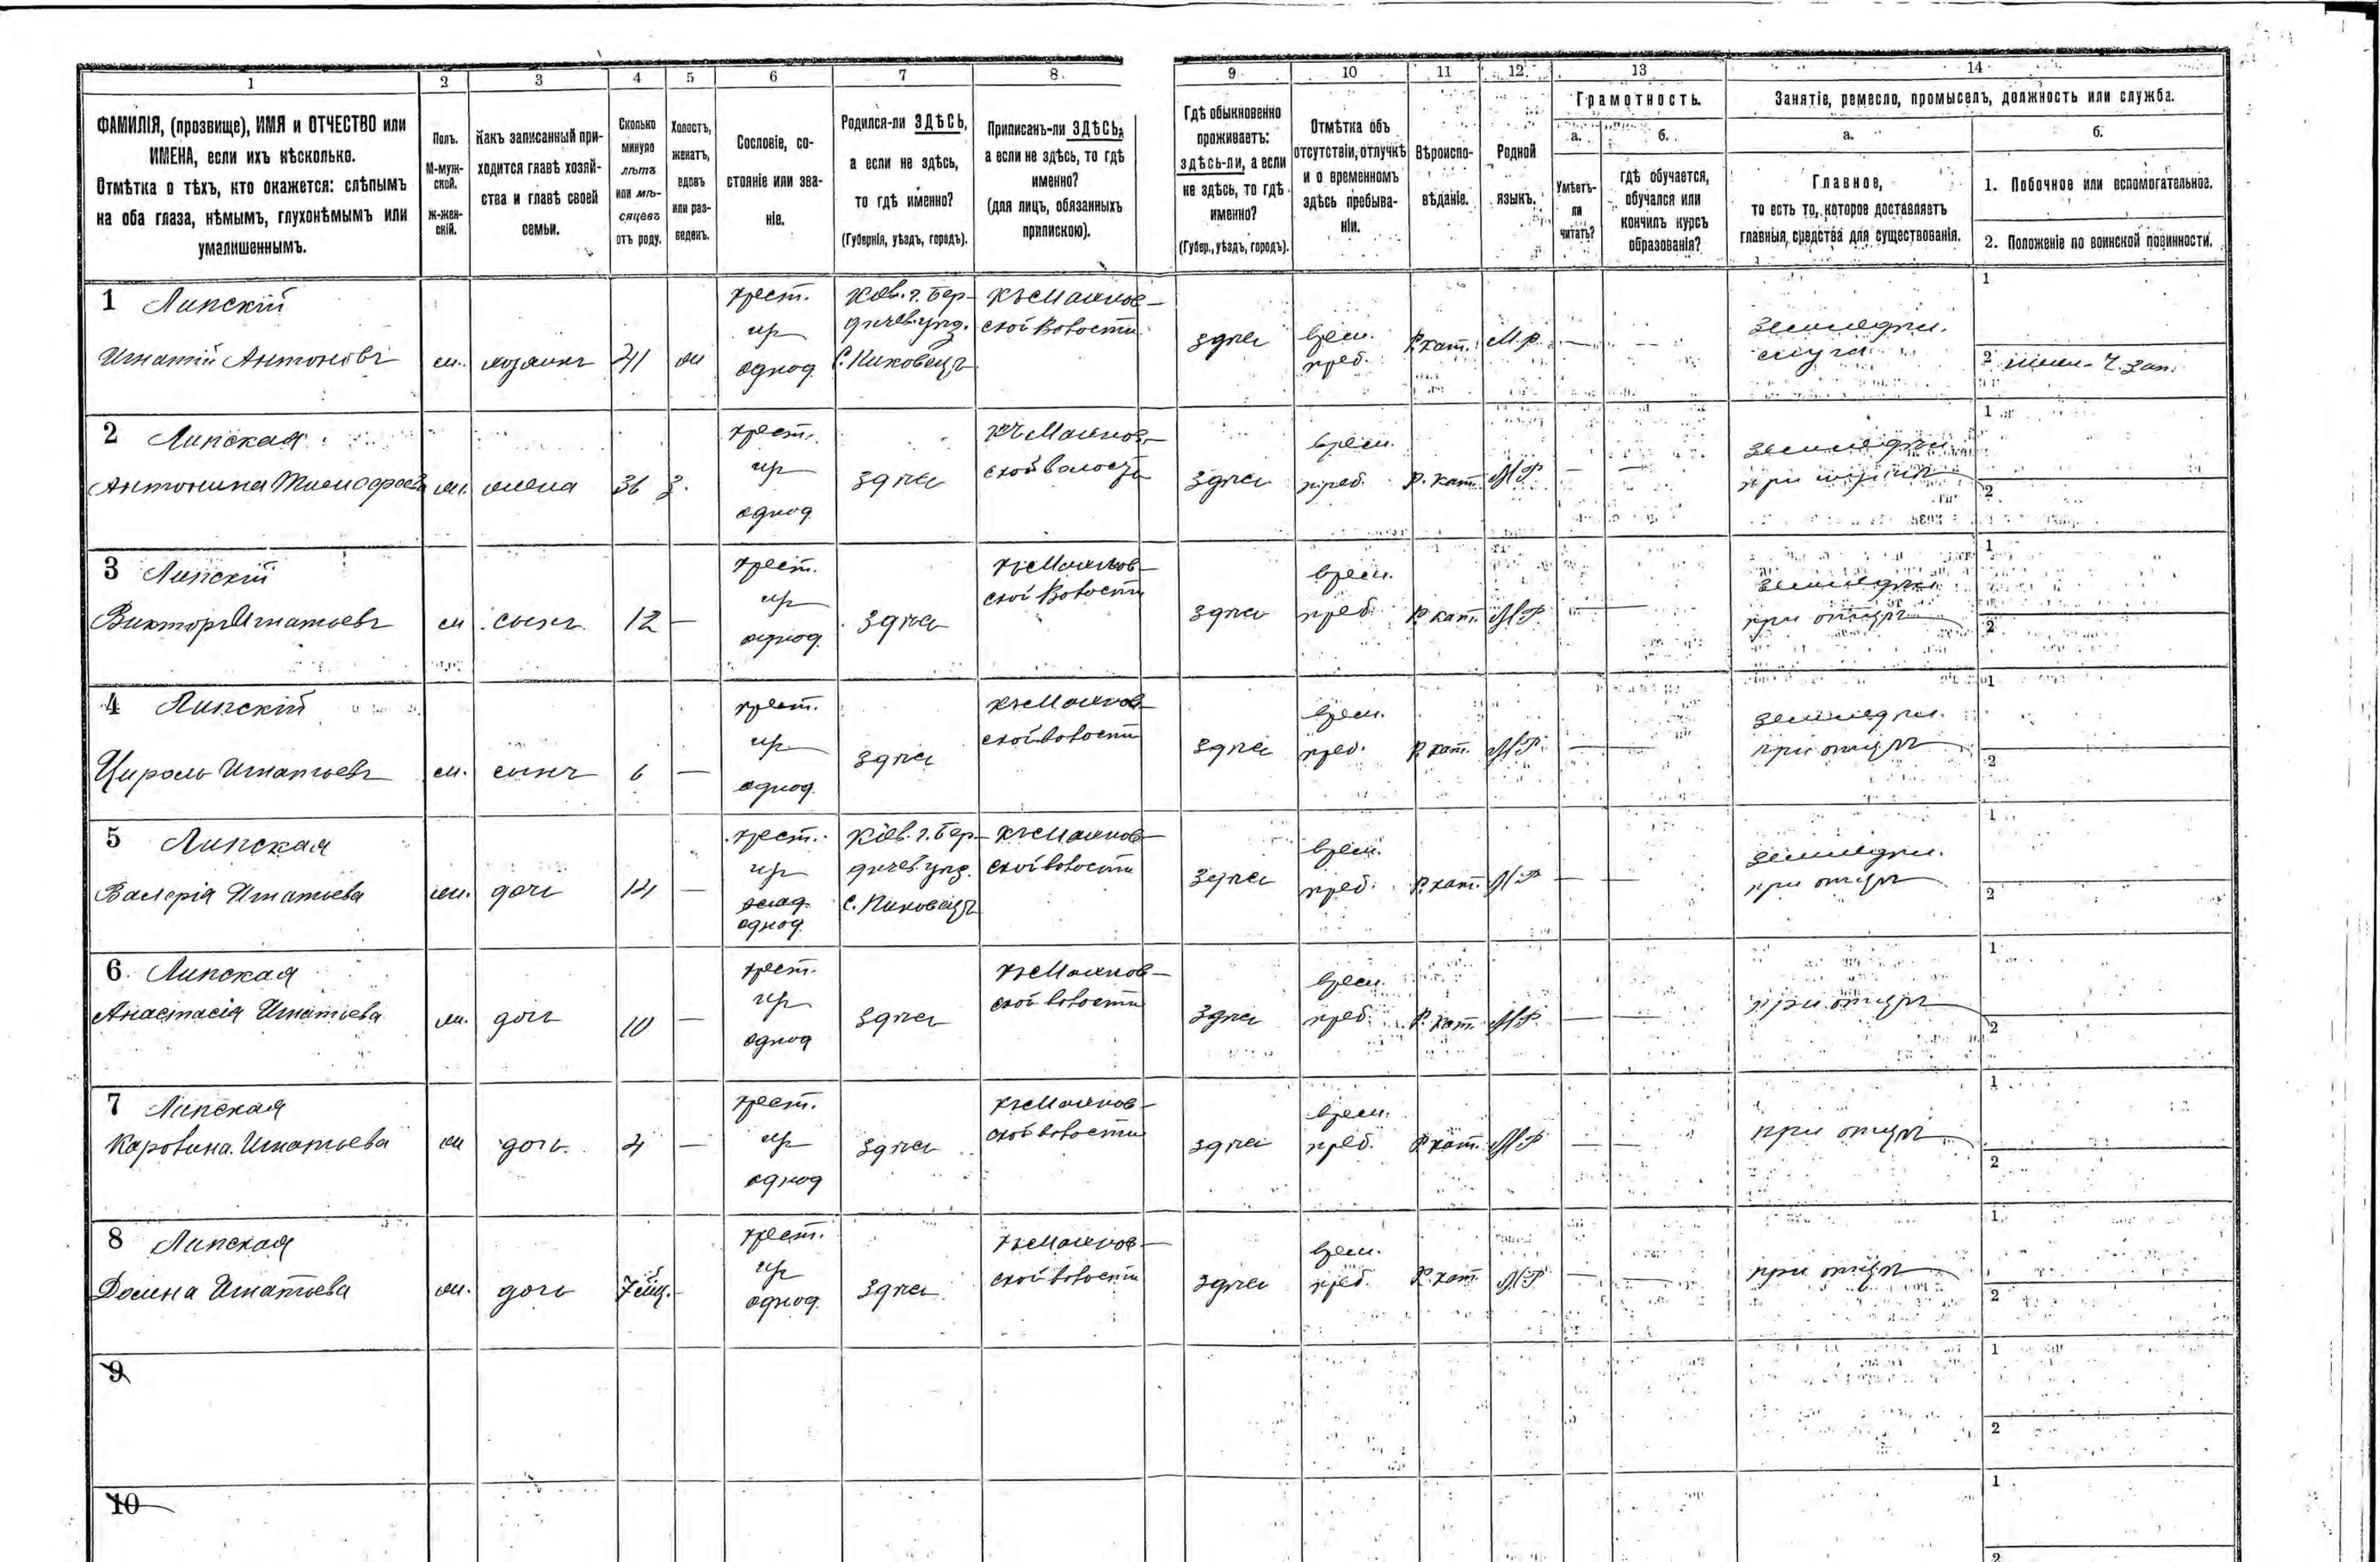 1 2 3 4 5 6 7 8 9 10 11 12 13 14
ФАМИЛІЯ, (прозвище), ИМЯ и ОТЧЕСТВО или
ИМЕНА, если ихъ нѣсколько.
Отмѣтка о тѣхъ, кто окажется: слѣпымъ
на оба глаза, нѣмымъ, глухонѣмымъ или
умалишеннымъ.
Полъ.
М-муж-
ской.
Ж-жен-
скій.
Какъ записанный при-
ходится главѣ хозяй-
ства и главѣ своей
семьи.
Сколько
минуло
лѣтъ
или мѣ-
сяцевъ
отъ роду.
Холостъ,
женатъ,
вдовъ
или раз-
веденъ.
Сословіе, со-
стояніе или зва-
ніе.
Родился-ли ЗДѢСЬ,
а если не здѣсь,
то гдѣ именно?
(Губернія, уѣздъ, городъ).
Приписанъ-ли ЗДѢСЬ,
а если не здѣсь, то гдѣ
именно?
(для лицъ, обязанныхъ
припискою).
Гдѣ обыкновенно
проживаетъ:
здѣсь-ли, а если
не здѣсь, то гдѣ
именно?
(Губер., уѣздъ, городъ).
Отмѣтка объ
отсутствіи, отлучкѣ
и о временномъ
здѣсь пребыва-
ніи.
Вѣроиспо-
вѣданіе.
Родной
языкъ.
Грамотность.
а.
Умѣетъ-
ли
читать?
б.
гдѣ обучается,
обучался или
кончилъ курсъ
образованія?
Занятіе, ремесло, промыселъ, должность или служба.
а.
Главное,
то есть то, которое доставляетъ
главныя средства для существованія.
б.
1. Побочное или вспомогательное.
2. Положеніе по воинской повинности.
1 Липскій
Игнатій Антоновъ м. хозяинъ 41 ж
крест.
из
однод.
Кіев. г. Бер-
дичев. уѣзд.
С. Пиковецъ
къ Махнов-
ской Волости
здѣсь
врем.
преб.
Р. кат. М. р. — —
земледѣл.
1
2
2 Липская
Антонина ж. жена 36 з.
крест.
из
однод.
здѣсь
къ Махнов-
ской волости
здѣсь
врем.
преб.
Р. кат. М. Р. — —
земледѣл.
при мужѣ
1
2
3 Липскій
Викторъ Игнатьевъ м сынъ 12 —
крест.
из
однод.
здѣсь
къ Махнов-
ской Волости
здѣсь
врем.
преб.
Р. кат. М. Р. — —
земледѣл.
при отцѣ
1
2
4 Липскій
Цироль Игнатьевъ м. сынъ 6 —
крест.
из
однод.
здѣсь
къ Махнов-
ской волости
здѣсь
врем.
преб.
Р. кат. М. Р. — —
земледѣл.
при отцѣ
1
2
5 Липская
Валерія Игнатьева ж. дочь 14 —
крест.
из
однод.
Кіев. г. Бер-
дичев. уѣзд.
С. Пиковецъ
къ Махнов-
ской волости
здѣсь
врем.
преб.
Р. кат. М. Р. — —
земледѣл.
при отцѣ
1
2
6. Липская
Анастасія Игнатьева ж. дочь 10 —
крест.
из
однод
здѣсь
къ Махнов-
ской волости
здѣсь
врем.
преб.
Р. кат. М. Р. — —
при отцѣ
1
2
7 Липская
Каролина Игнатьева ж дочь. 4 —
крест.
из
однод
здѣсь
къ Махнов-
ской волости
здѣсь
врем.
преб.
Р. кат. М. Р. — —
при отцѣ
1
2
8 Липская
Домина Игнатьева ж. дочь 7 мѣц. —
крест.
из
однод.
здѣсь
къ Махнов-
ской волости
здѣсь
врем.
преб.
Р. кат. М. Р. — —
при отцѣ
1
2
9
1
2
10
1
2